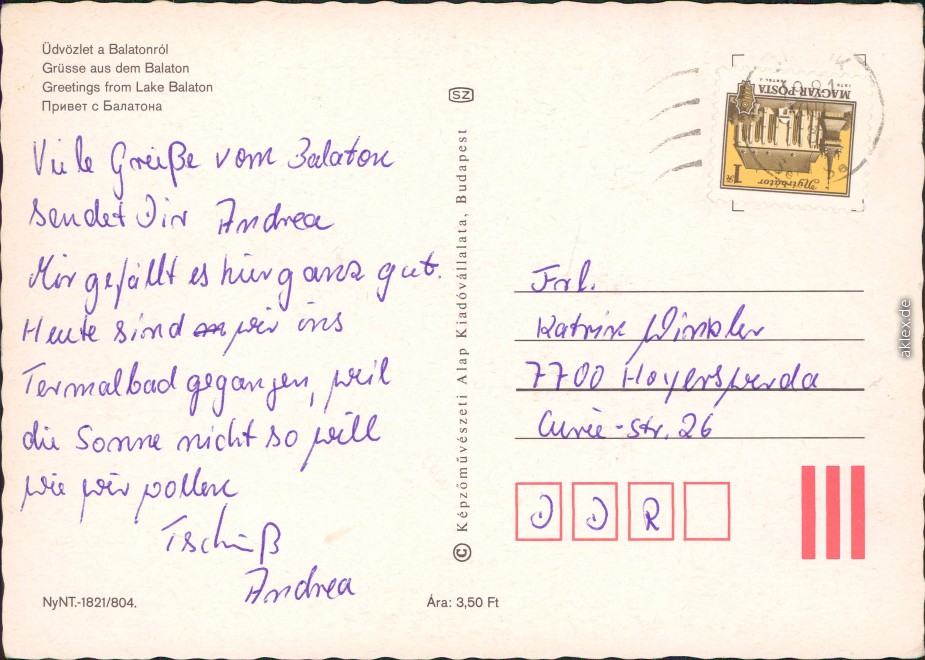 Üdvözlet a Balatonról
Grüsse aus dem Balaton
Greetings from Lake Balaton
Привет с Балатона
Viele Greiße vom Balaton
sendet Dir Andrea
Mir gefällt es hier ganz gut.
Heute sind wir ins
Termalbad gegangen, weil
die Sonne nicht so will
wie wir wollen
Tschüß
Andrea
NyNT.-1821/804.
Ára: 3,50 Ft
SZ
© Képzőművészeti Alap Kiadóvállalata, Budapest
MAGYAR POSTA
Nyírbátor
1
Frl.
Katrin Winkler
7700 Hoyerswerda
Curie-str. 26
D D R
aklex.de